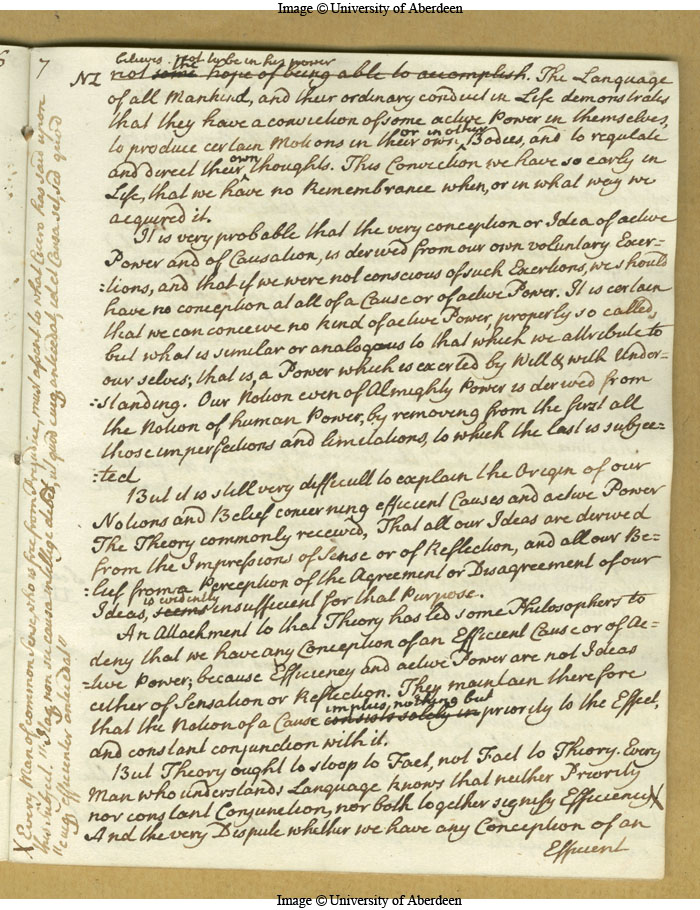 Image © University of Aberdeen
7
believes not to be in his power
N I not some the hope of being able to accomplish. The Language
of all Mankind, and their ordinary conduct in Life demonstrates
that they have a conviction of some active Power in themselves,
to produce certain Motions in their own, or in other Bodies, and to regulate
and direct their own thoughts. This Conviction we have so early in
Life, that we have no Remembrance when, or in what way we
acquired it.
It is very probable that the very conception or Idea of active
Power and of Causation, is derived from our own voluntary Exer=
:tions, and that if we were not conscious of such Exertions, we should
have no conception at all of a Cause or of active Power. It is certain
that we can conceive no kind of active Power, properly so called,
but what is similar or analogous to that which we attribute to
our selves; that is, a Power which is exerted by Will & with Under=
:standing. Our Notion even of Almighty Power is derived from
the Notion of human Power, by removing from the first all
those imperfections and limitations, to which the last is subjec=
:ted
But it is still very difficult to explain the Origin of our
Notions and Belief concerning efficient Causes and active Power
The Theory commonly received, That all our Ideas are derived
from the Impressions of Sense or of Reflection, and all our Be=
:lief from a Perception of the Agreement or Disagreement of our
Ideas, seems is evidently insufficient for that Purpose.
An Attachment to that Theory has led some Philosophers to
deny that we have any Conception of an Efficient Cause or of Ac=
:tive Power; because Efficiency and active Power are not Ideas
either of Sensation or Reflection. They maintain therefore
that the Notion of a Cause consists solely in implies nothing but priority to the Effect,
and constant conjunction with it.
But Theory ought to stoop to Fact, not Fact to Theory. Every
Man who understands Language knows that neither Priority
nor constant Conjunction, nor both together signify Efficiency X
And the very Dispute whether we have any Conception of an
Efficient
X Every Man of common Sense, who is free from Prejudice, must assent to what Cicero has said upon
this subject. "Itaq non sic causa intelligi debet, ut quod cuiq antecedat, id et Causa sit, sed quod
"cuiq efficienter antecedat"
Image © University of Aberdeen